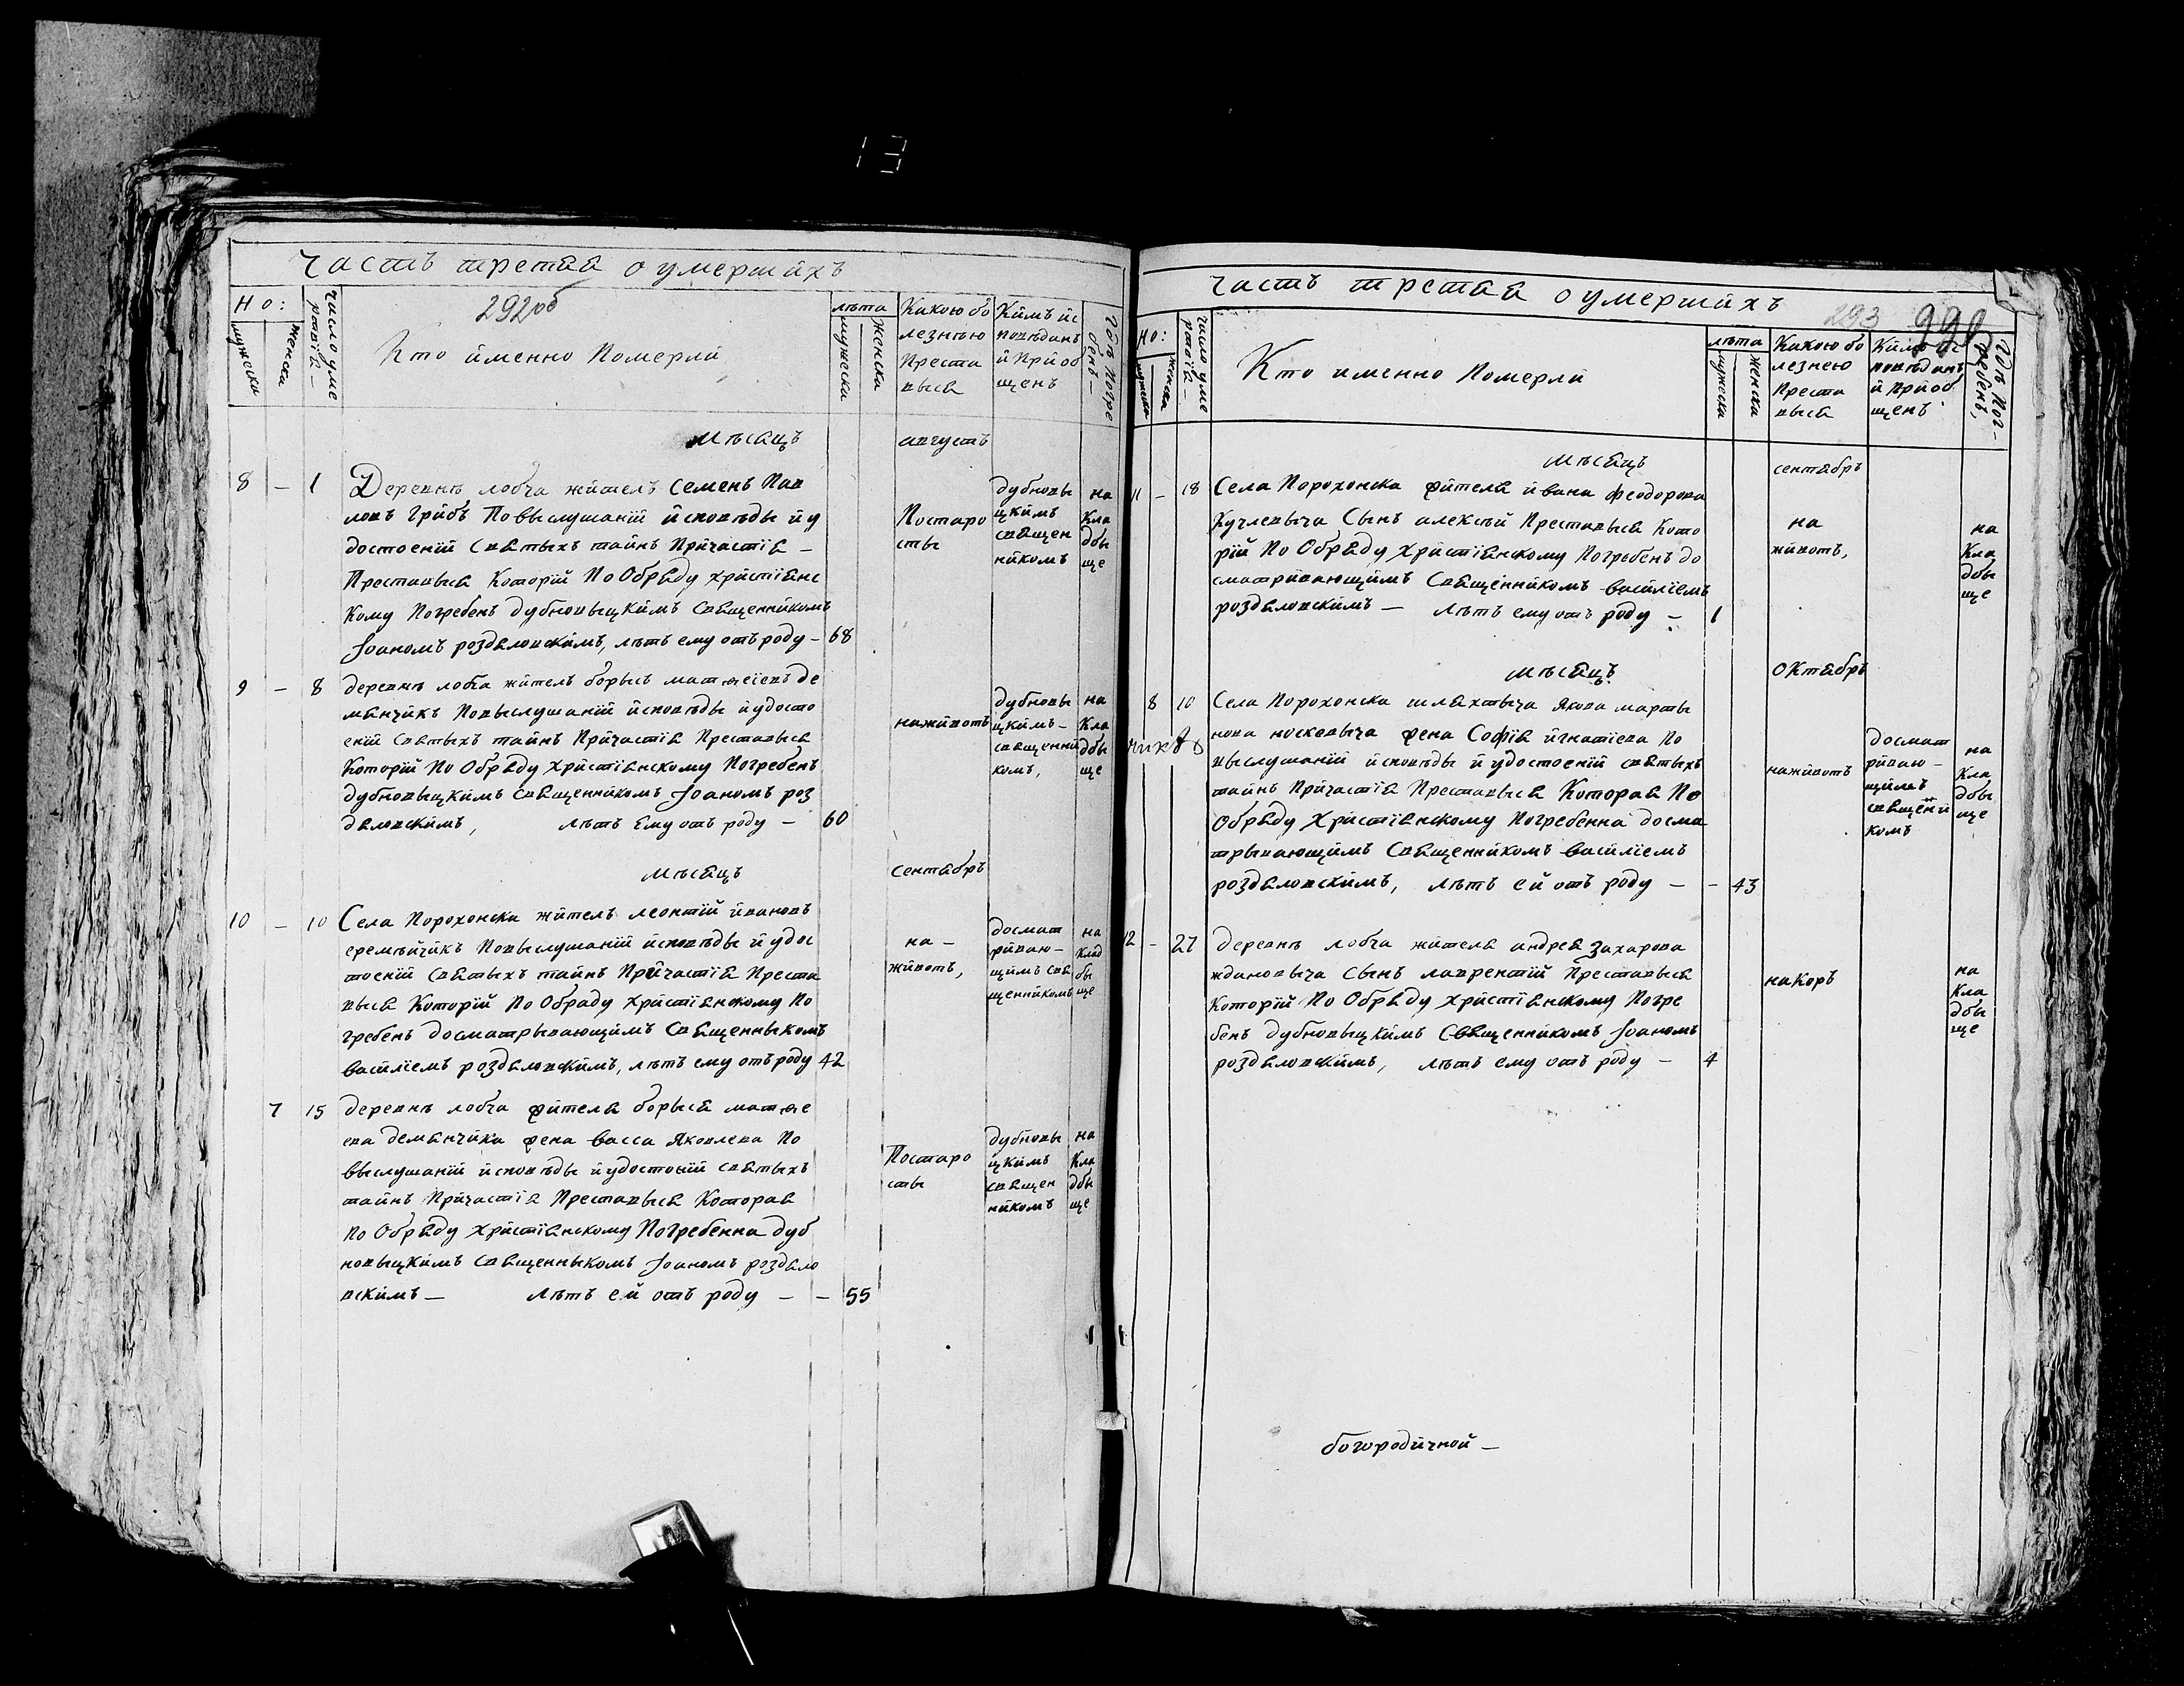 13
часть третяя о умершихъ
292об
Но:
мужеска
женска
число умерттвія
Кто именно Померли
лѣта
мужеска
женска
Какою бо
лезнѣю
Преста
выся
Кимъ ис
повѣданъ
и Приоб
щенъ
Гдѣ Погре
бенъ
мѣсяцъ
августъ
8 – 1
Деревнѣ лобча жителъ Семенъ Пав
ловъ Грибъ Повыслушаніи исповѣды и у
достоеніи Святыхъ тайнъ Причастія –
Преставыся Которій По Обряду христіянс
кому Погребенъ дубновыцкимъ Священникомъ
Іоаномъ роздяловскимъ, лѣтъ ему отъ роду – 68
Постаро
сты
дубновы
цкимъ
священ
никомъ
на
Кла
дбы
ще
9 – 8
деревнѣ лобча жителъ борысъ матѳеіевъ де
мянчикъ Повыслушаніи исповѣды и удосто
еніи Святыхъ тайнъ Причастія Преставыся
Которій По Обряду христіянскому Погребенъ
дубновыцкимъ Священникомъ Іоаномъ роз
дяловскимъ, лѣтъ Ему отъ роду – 60
наживотъ
дубновы
цкимъ –
священни
комъ,
на
Кла
дбы
ще
мѣсяцъ
сентябръ
10 – 10
Села Порохонска жителъ леонтій ивановъ
еремѣйчикъ Повыслушаніи исповѣды и удос
тоеніи Святыхъ тайнъ Причастія Преста
выся Которій По Обряду христіянскому По
гребенъ досматрывающимъ Священныкомъ
василіемъ роздяловскимъ, лѣтъ ему отъ роду 42
на –
животъ,
досмат
риваю –
щимъ свя
щенникомъ
на
клад
бы
ще
7 15
деревнѣ лобча жителя борыса матѳе
ева демянчика жена васса Яковлева По
выслушаніи исповѣды и удостоіи святыхъ
тайнъ Причастія Преставыся Которая
По Обряду христіянскому Погребенна дуб
новыцкимъ Священныкомъ Іоаномъ роздяло
вскимъ – лѣтъ ей отъ роду – – 55
Постаро
сты
дубновы
цкимъ
священ
никомъ
на
Кла
дбы
ще
часть третяя о умершихъ
293
Но:
мужеска
женска
число умерттвія
Кто именно Померли
лѣта
мужеска
женска
Какою бо
лезнею
Преста
выся
Кимъ ис
повѣданъ
и Приоб
щенъ
Гдѣ Пог-
ребенъ,
мѣсяцъ
сентябръ
11 – 18
Села Порохонска жителя ивана феодорова
Кучлевыча Сынъ алексѣй Преставыся Кото
рій По Обряду христіянскому Погребенъ до
сматривающимъ Священникомъ василіемъ
роздяловскимъ – лѣтъ ему отъ роду – 1
на
животъ,
на
Кла
дбы
ще
мѣсяцъ
Октябръ
8 10
Села Порохонска шляхтыча Якова марты
нова носкевыча жена Софія игнатіева По
выслушаніи исповѣды и удостоеніи святыхъ
тайнъ Причастія Преставыся Которая По
Обряду Христіянскому Погребенна досма
трывающимъ Священникомъ василіемъ
роздяловскимъ, лѣтъ ей отъ роду – – 43
наживотъ
досмат
риваю –
щимъ
священни
комъ
на
Кла
дбы
ще
12 – 27
деревнѣ лобча жителя андрея захарова
ждановыча Сынъ лаврентій Преставыся
Которій По Обряду христіянскому Погре
бенъ дубновыцкимъ Священникомъ Іоаномъ
роздяловскимъ, лѣтъ ему отъ роду – 4
накоръ
на
Кла
дбы
ще
богородичной –